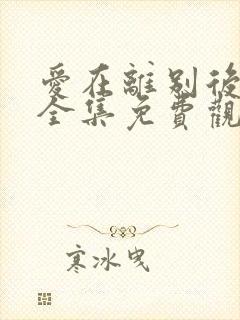 愛在離別後
全集免費觀
寒冰曳